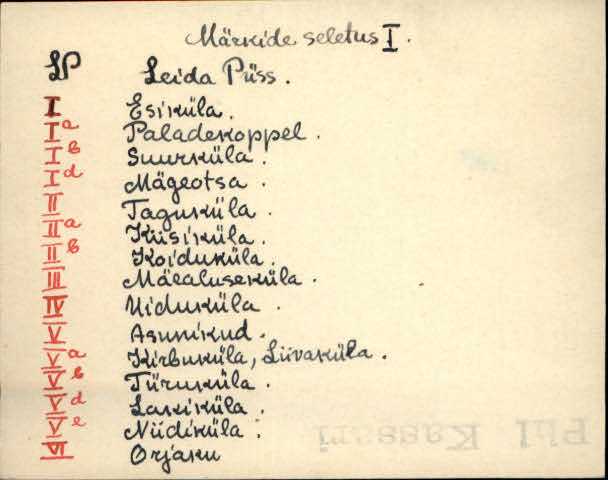 Märkide seletus I.
LP Leida Püss.
I Esiküla.
I a Paladekoppel.
I b Suurküla.
I d Mägeotsa.
II Taguküla.
II a Kiisiküla.
II b Koiduküla.
III Mäealuseküla.
IV Uiduküla.
V Asunikud.
V a Kirbuküla, Liivaküla.
V b Türuküla.
V d Laskiküla.
V e Niidiküla.
VI Orjaku
Phl Kassari